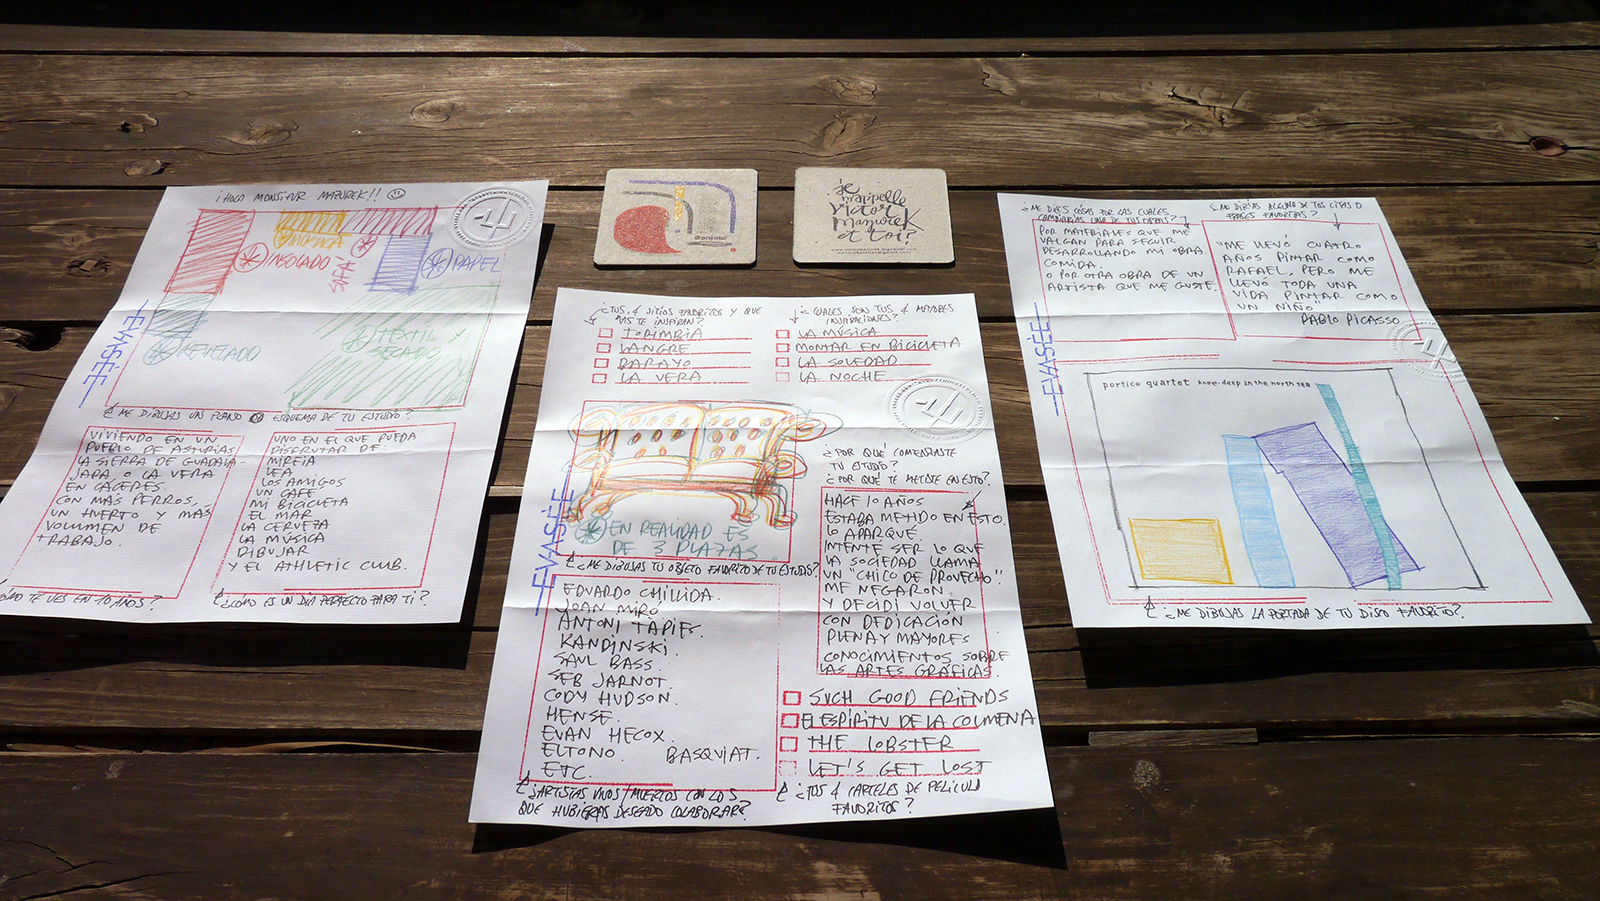 ¡HOLA MONSIEUR MAZUREK!!
MÚSICA
INSOLADO
SOFÁ
PAPEL
REVELADO
TEXTIL Y
SECADO
EVASÉE
¿ME DIBUJAS UN PLANO O ESQUEMA DE TU ESTUDIO?
VIVIENDO EN UN
PUEBLO DE ASTURIAS
LA SIERRA DE GUADALA-
JARA O LA VERA
EN CÁCERES.
CON MÁS PERROS,
UN HUERTO Y MÁS
VOLUMEN DE
TRABAJO.
¿CÓMO TE VES EN 10 AÑOS?
UNO EN EL QUE PUEDA
DISFRUTAR DE:
MIREIA
LEA
LOS AMIGOS
UN CAFÉ
MI BICICLETA
EL MAR
LA CERVEZA
LA MÚSICA
DIBUJAR
Y EL ATHLETIC CLUB.
¿CÓMO ES UN DÍA PERFECTO PARA TI?
Bonjour
je
m'appelle
Victor
Mazurek
et toi?
¿TUS 4 SITIOS FAVORITOS Y QUE
MÁS TE INSPIRAN?
TORIMBIA
LANGRE
BARAYO
LA VERA
¿CUALES SON TUS 4 MAYORES
INSPIRACIONES?
LA MÚSICA
MONTAR EN BICICLETA
LA SOLEDAD
LA NOCHE
EVASÉE
EN REALIDAD ES
DE 3 PLAZAS.
¿ME DIBUJAS TU OBJETO FAVORITO DE TU ESTUDIO?
¿POR QUÉ COMENZASTE
TU ESTUDIO?
¿POR QUÉ TE METISTE EN ESTO?
HACE 10 AÑOS
ESTABA METIDO EN ESTO.
LO APARQUÉ.
INTENTÉ SER LO QUE
LA SOCIEDAD LLAMA
UN "CHICO DE PROVECHO".
ME NEGARON
Y DECIDÍ VOLVER
CON DEDICACIÓN
PLENA Y MAYORES
CONOCIMIENTOS SOBRE
LAS ARTES GRÁFICAS.
EDUARDO CHILLIDA.
JOAN MIRÓ
ANTONI TÀPIES.
KANDINSKI
SAUL BASS.
SEB JARNOT.
CODY HUDSON.
HENSE.
EVAN HECOX.
ELTONO. BASQUIAT.
ETC.
¿ARTISTAS VIVOS/MUERTOS CON LOS
QUE HUBIERAS DESEADO COLABORAR?
SUCH GOOD FRIENDS
EL ESPÍRITU DE LA COLMENA
THE LOBSTER
LET'S GET LOST
¿TUS 4 CARTELES DE PELÍCULA
FAVORITOS?
¿ME DICES COSAS POR LAS CUALES
CAMBIARÍAS UNA DE TUS OBRAS?
POR MATERIALES QUE ME
VALGAN PARA SEGUIR
DESARROLLANDO MI OBRA.
COMIDA.
O POR OTRA OBRA DE UN
ARTISTA QUE ME GUSTE.
¿ME DIRÍAS ALGUNA DE TUS CITAS O
FRASES FAVORITAS?
"ME LLEVÓ CUATRO
AÑOS PINTAR COMO
RAFAEL, PERO ME
LLEVÓ TODA UNA
VIDA PINTAR COMO
UN NIÑO"
PABLO PICASSO
EVASÉE
portico quartet knee-deep in the north sea
¿ME DIBUJAS LA PORTADA DE TU DISCO FAVORITO?